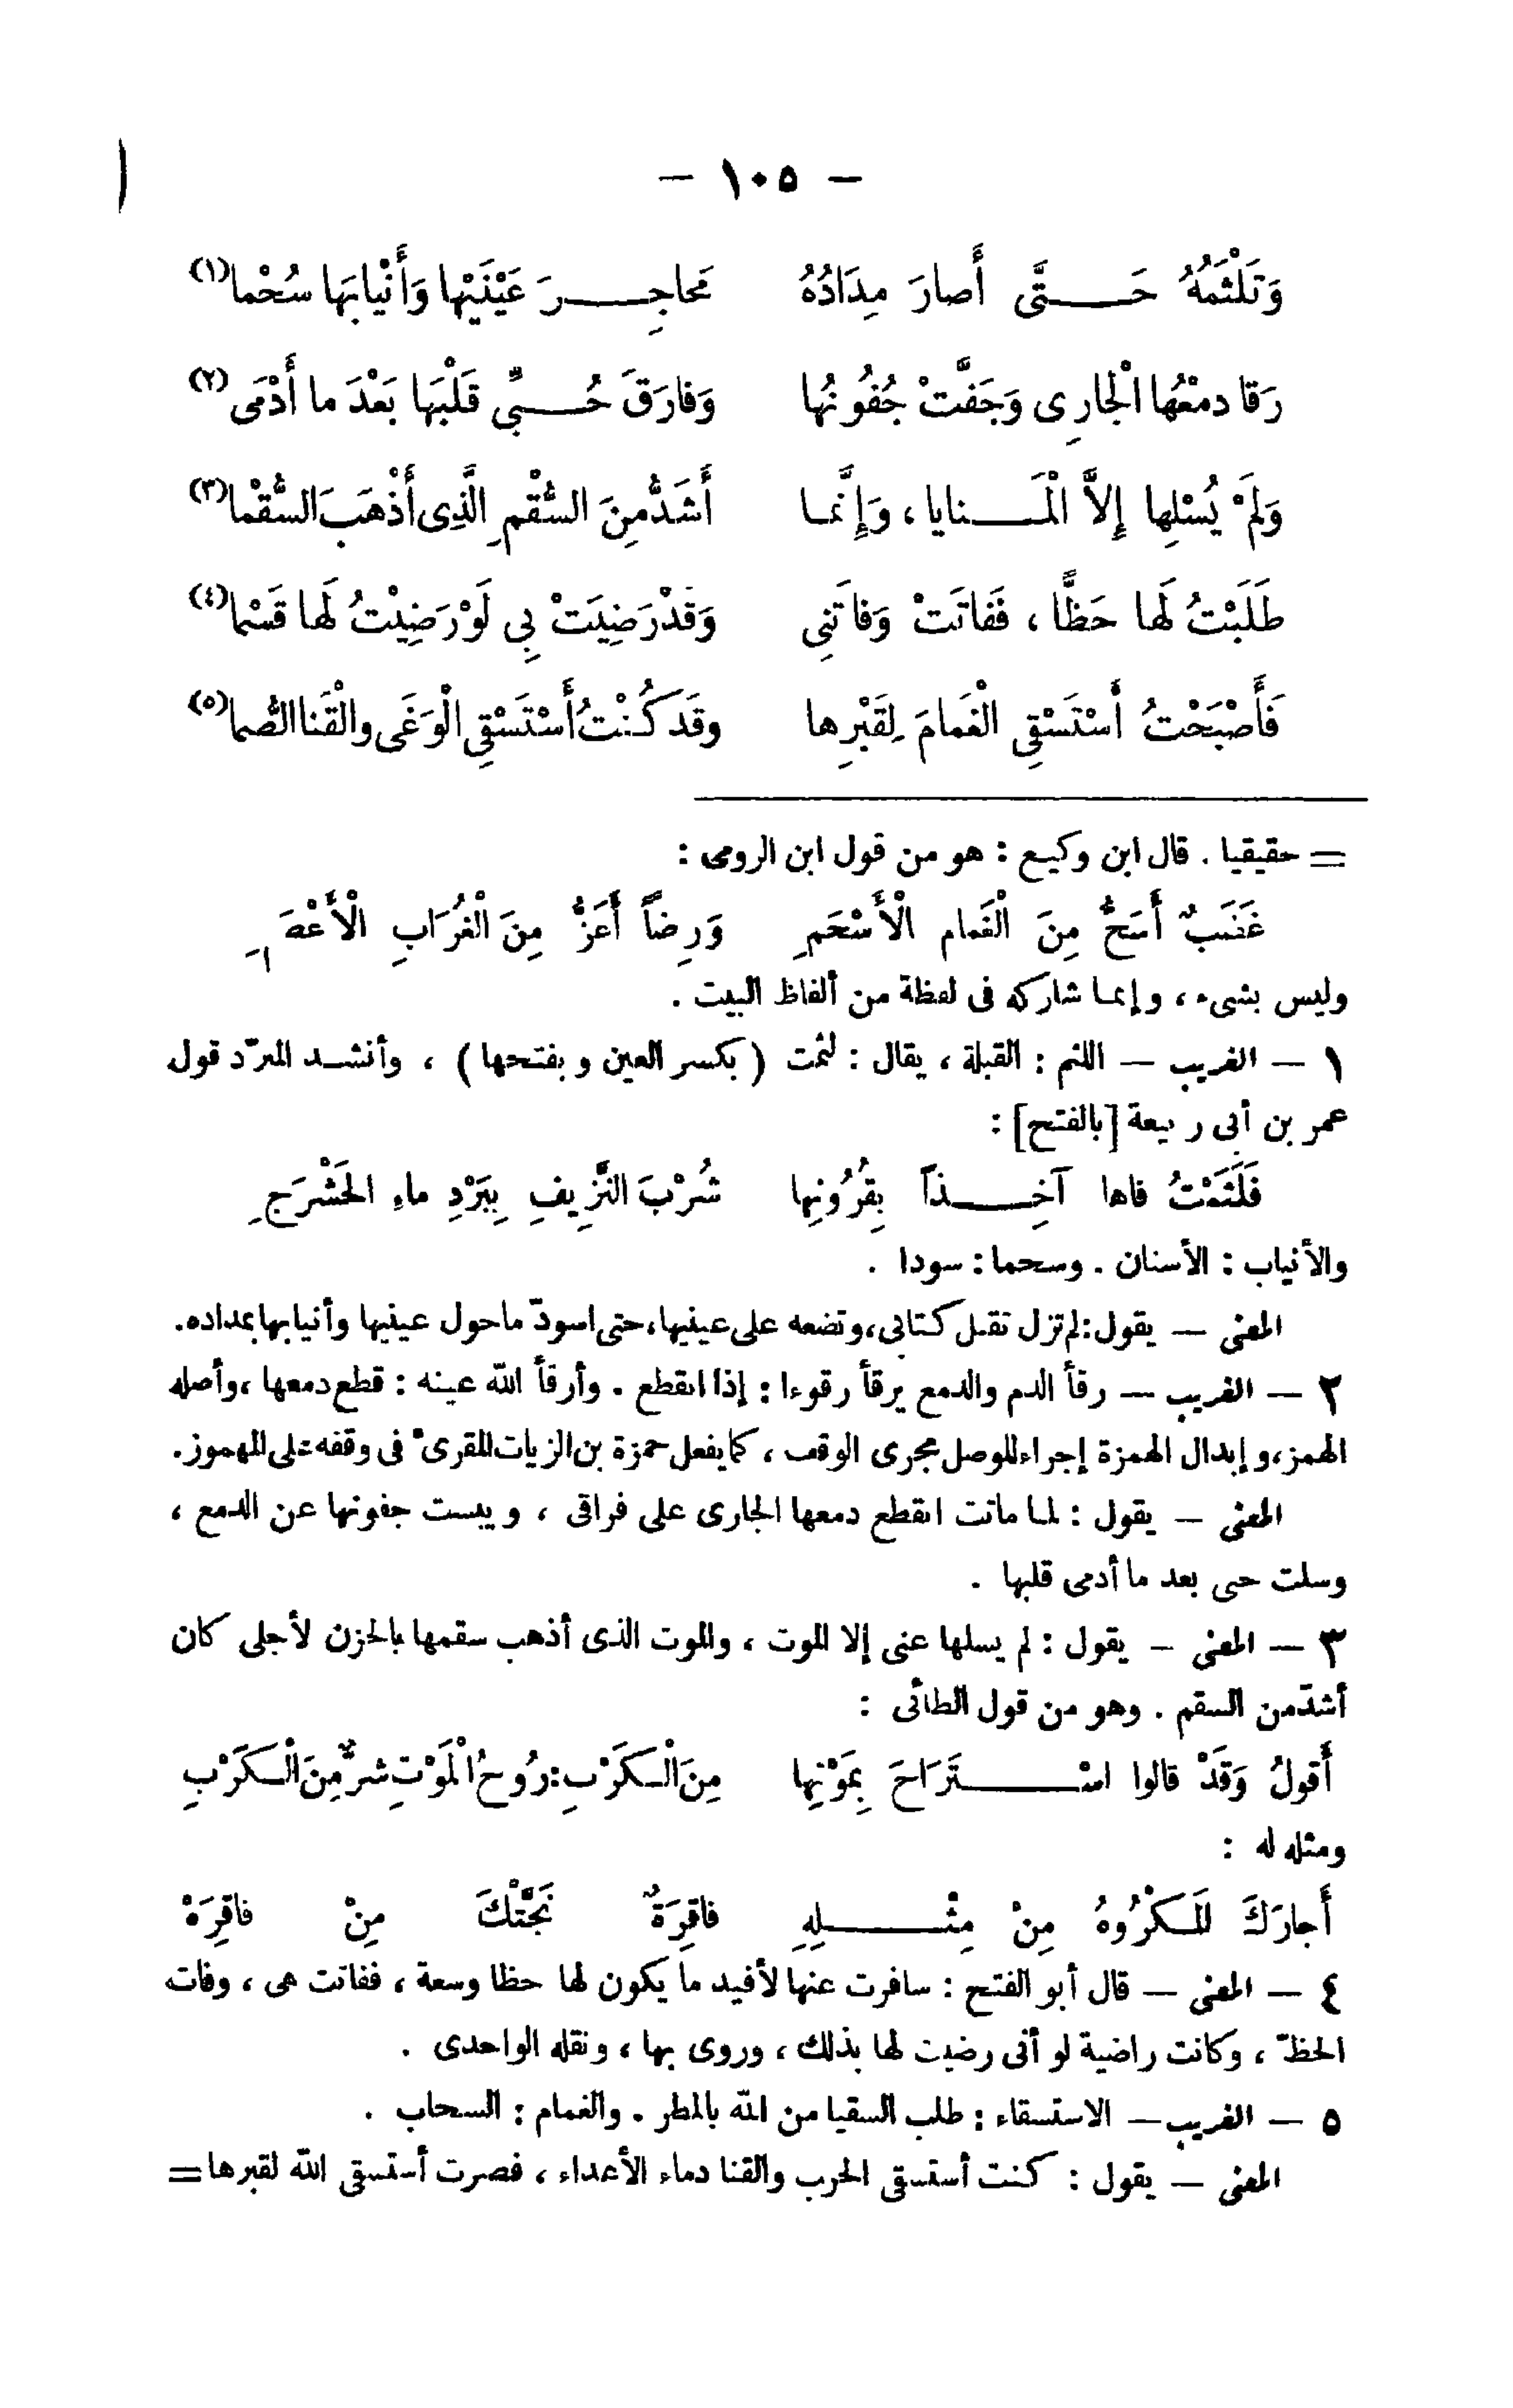 — ١٠٥ —
وَتَلْثَمُهُ حَـتَّى أَصارَ مِدَادُهُ مَحاجِـرَ عَيْنَيْها وَأَنْيابَها سُحْما(١)
رَقا دمْعُها الْجارِى وَجَفَّتْ جُفُونُها وَفارَقَ حُـبِّى قَلْبَها بَعْدَ ما أَدْمَى(٢)
وَلَمْ يُسْلِها إِلاَّ الْمَـنايا، وَإِنَّمـا أَشَدُّ مِنَ السُّقْمِ الَّذِى أَذْهَبَ السُّقْما(٣)
طَلَبْتُ لَها حَظًّا، فَفاتَتْ وَفاتَنِى وَقَدْ رَضِيَتْ بِى لَوْ رَضِيْتُ لَها قَسْما(٤)
فَأَصْبَحْتُ أَسْتَسْقِى الْغَمامَ لِقَبْرِها وقَد كُنْتُ أَسْتَسْقِى الْوَغَى والْقَنا الصُّما(٥)
= حقيقيا . قال ابن وكيع : هو من قول ابن الرومى :
غَضَبٌ أَسَحُّ مِنَ الْغَمام الْأَسْحَمِ وَرِضاً أَعَزُّ مِنَ الْغُرَابِ
وليس بشىء، وإنمـا شاركه فى لفظة من ألفاظ البيت .
١ — الغريب — اللثم : القبلة، يقال : لثمت ( بكسر العين وبفتحها ) ، وأنشـد المبرّد قول
عمر بن أبى ربيعة [بالفتح] :
فَلَثَمْتُ فاها آخِـذاً بِقُرُونِها شُرْبَ النَّزِيفِ بِبَرْدِ ماءِ الحَشْرَجِ
والأنياب : الأسنان . وسحما : سودا .
المعنى — يقول: لم تزل تقبل كتابى، وتضعه على عينيها، حتى اسودّ ماحول عينيها وأنيابها بمداده.
٢ — الغريب — رقأ الدم والدمع يرقأ رقوءا : إذا انقطع . وأرقأ الله عينه : قطع دمعها، وأصله
الهمز، وإبدال الهمزة إجراء للوصل مجرى الوقف، كما يفعل حمزة بن الزيات المقرىْ فى وقفه على المهموز.
المعنى — يقول : لمـا ماتت انقطع دمعها الجارى على فراقى ، ويبست جفونها عن الدمع ،
وسلت حبى بعد ما أدمى قلبها .
٣ — المعنى — يقول : لم يسلها عنى إلا الموت ، والموت الذى أذهب سقمها بالحزن لأجلى كان
أشدّ من السقم . وهو من قول الطائى :
أَقولُ وَقَدْ قالوا اسْـتَرَاحَ بِمَوْتِها مِنَ الْـكَرْبِ: رُوحُ الْمَوْتِ شرٌّ مِنَ الْـكَرْبِ
ومثله له :
أَجارَكَ الَمـكْرُوهُ مِنْ مِثْـلِهِ فاقِرَةٌ نَجَّتْكَ مِنْ فاقِرَهْ
٤ — المعنى — قال أبو الفتح : سافرت عنها لأفيد ما يكون لها حظا وسعة ، ففاتت هى ، وفات
الحظّ ، وكانت راضية لو أنى رضيت لها بذلك ، وروى بها ، ونقله الواحدى .
٥ — الغريب — الاستسقاء : طلب السقيا من الله بالمطر . والغمام : السحاب .
المعنى — يقول : كنت أستسقى الحرب والقنا دماء الأعداء ، فصرت أستسقى الله لقبرها =